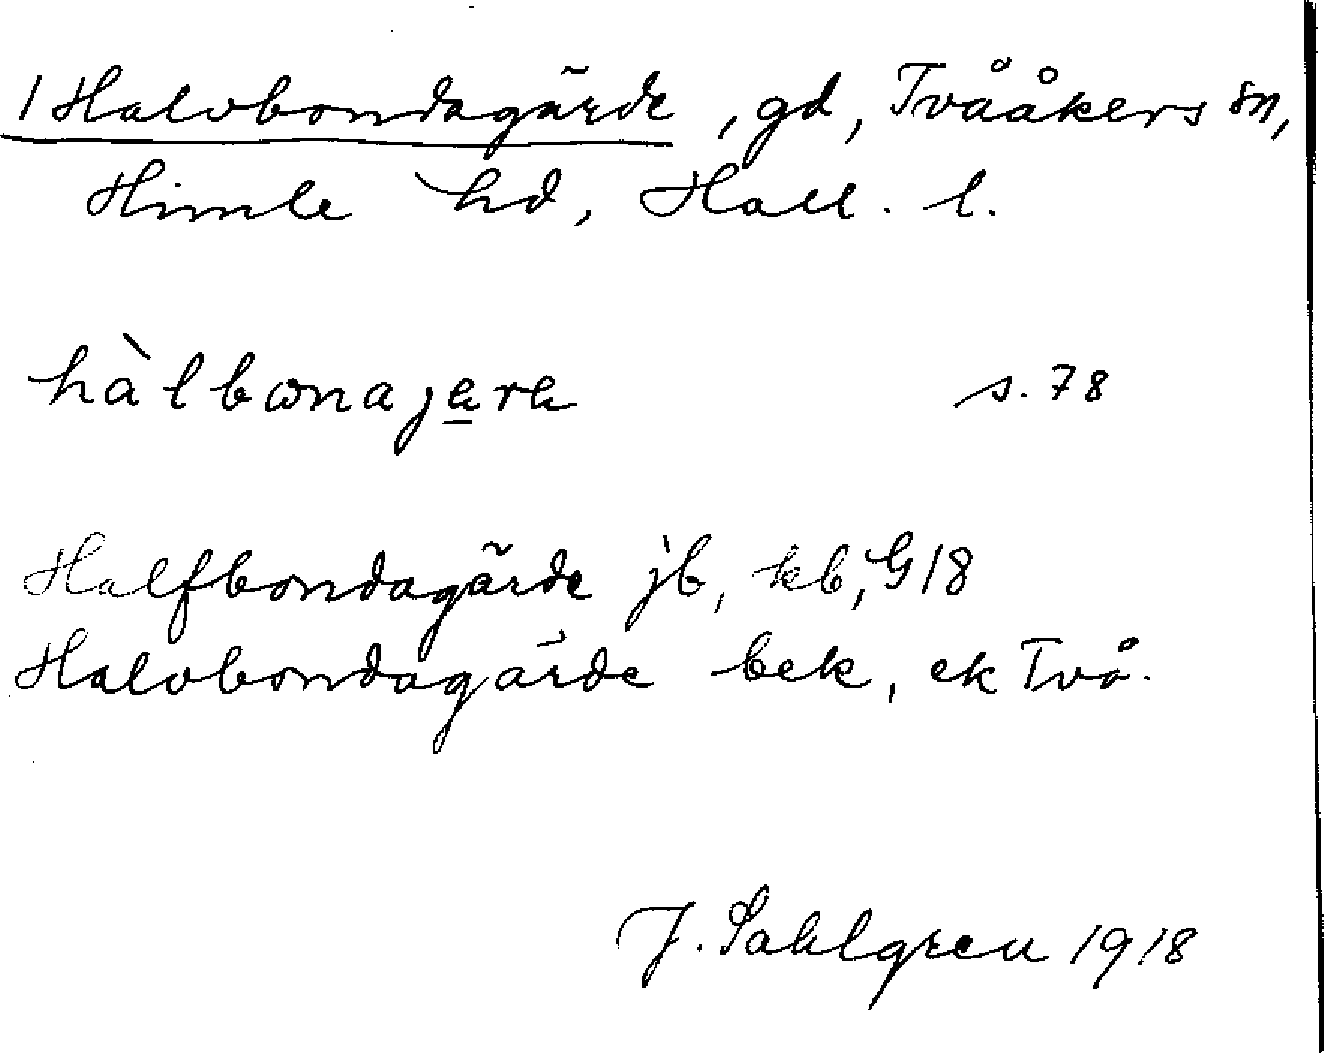 1 Halvbondagärde, gd, Tvååkers sn,
Himle hd, Hall. l.
hàlbωnajära s. 78
Halfbondagärde jb, kb, G18
Halvbondagärde bek, ek Två.
J. Sahlgren 1918